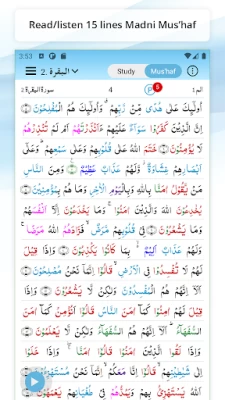 Read/listen 15 lines Madni Mus'haf
3:53
2. البقرة
Study
Mus'haf
سورة البقرة 2
4
P
6
الم 1
أُولَٰئِكَ عَلَىٰ هُدًى مِّن رَّبِّهِمْ وَأُولَٰئِكَ هُمُ الْمُفْلِحُونَ
إِنَّ الَّذِينَ كَفَرُوا سَوَاءٌ عَلَيْهِمْ أَأَنذَرْتَهُمْ أَمْ لَمْ تُنذِرْهُمْ
لَا يُؤْمِنُونَ خَتَمَ اللَّهُ عَلَىٰ قُلُوبِهِمْ وَعَلَىٰ سَمْعِهِمْ وَعَلَىٰ
أَبْصَارِهِمْ غِشَاوَةٌ وَلَهُمْ عَذَابٌ عَظِيمٌ وَمِنَ النَّاسِ
مَن يَقُولُ آمَنَّا بِاللَّهِ وَبِالْيَوْمِ الْآخِرِ وَمَا هُم بِمُؤْمِنِينَ
يُخَادِعُونَ اللَّهَ وَالَّذِينَ آمَنُوا وَمَا يَخْدَعُونَ إِلَّا أَنفُسَهُمْ
وَمَا يَشْعُرُونَ فِي قُلُوبِهِم مَّرَضٌ فَزَادَهُمُ اللَّهُ مَرَضًا
وَلَهُمْ عَذَابٌ أَلِيمٌ بِمَا كَانُوا يَكْذِبُونَ وَإِذَا قِيلَ
لَهُمْ لَا تُفْسِدُوا فِي الْأَرْضِ قَالُوا إِنَّمَا نَحْنُ مُصْلِحُونَ
أَلَا إِنَّهُمْ هُمُ الْمُفْسِدُونَ وَلَٰكِن لَّا يَشْعُرُونَ وَإِذَا
قِيلَ لَهُمْ آمِنُوا كَمَا آمَنَ النَّاسُ قَالُوا أَنُؤْمِنُ كَمَا آمَنَ
السُّفَهَاءُ أَلَا إِنَّهُمْ هُمُ السُّفَهَاءُ وَلَٰكِن لَّا يَعْلَمُونَ
وَإِذَا لَقُوا الَّذِينَ آمَنُوا قَالُوا آمَنَّا وَإِذَا خَلَوْا
إِلَىٰ شَيَاطِينِهِمْ قَالُوا إِنَّا مَعَكُمْ إِنَّمَا نَحْنُ مُسْتَهْزِئُونَ
اللَّهُ يَسْتَهْزِئُ بِهِمْ وَيَمُدُّهُمْ فِي طُغْيَانِهِمْ يَعْمَهُونَ